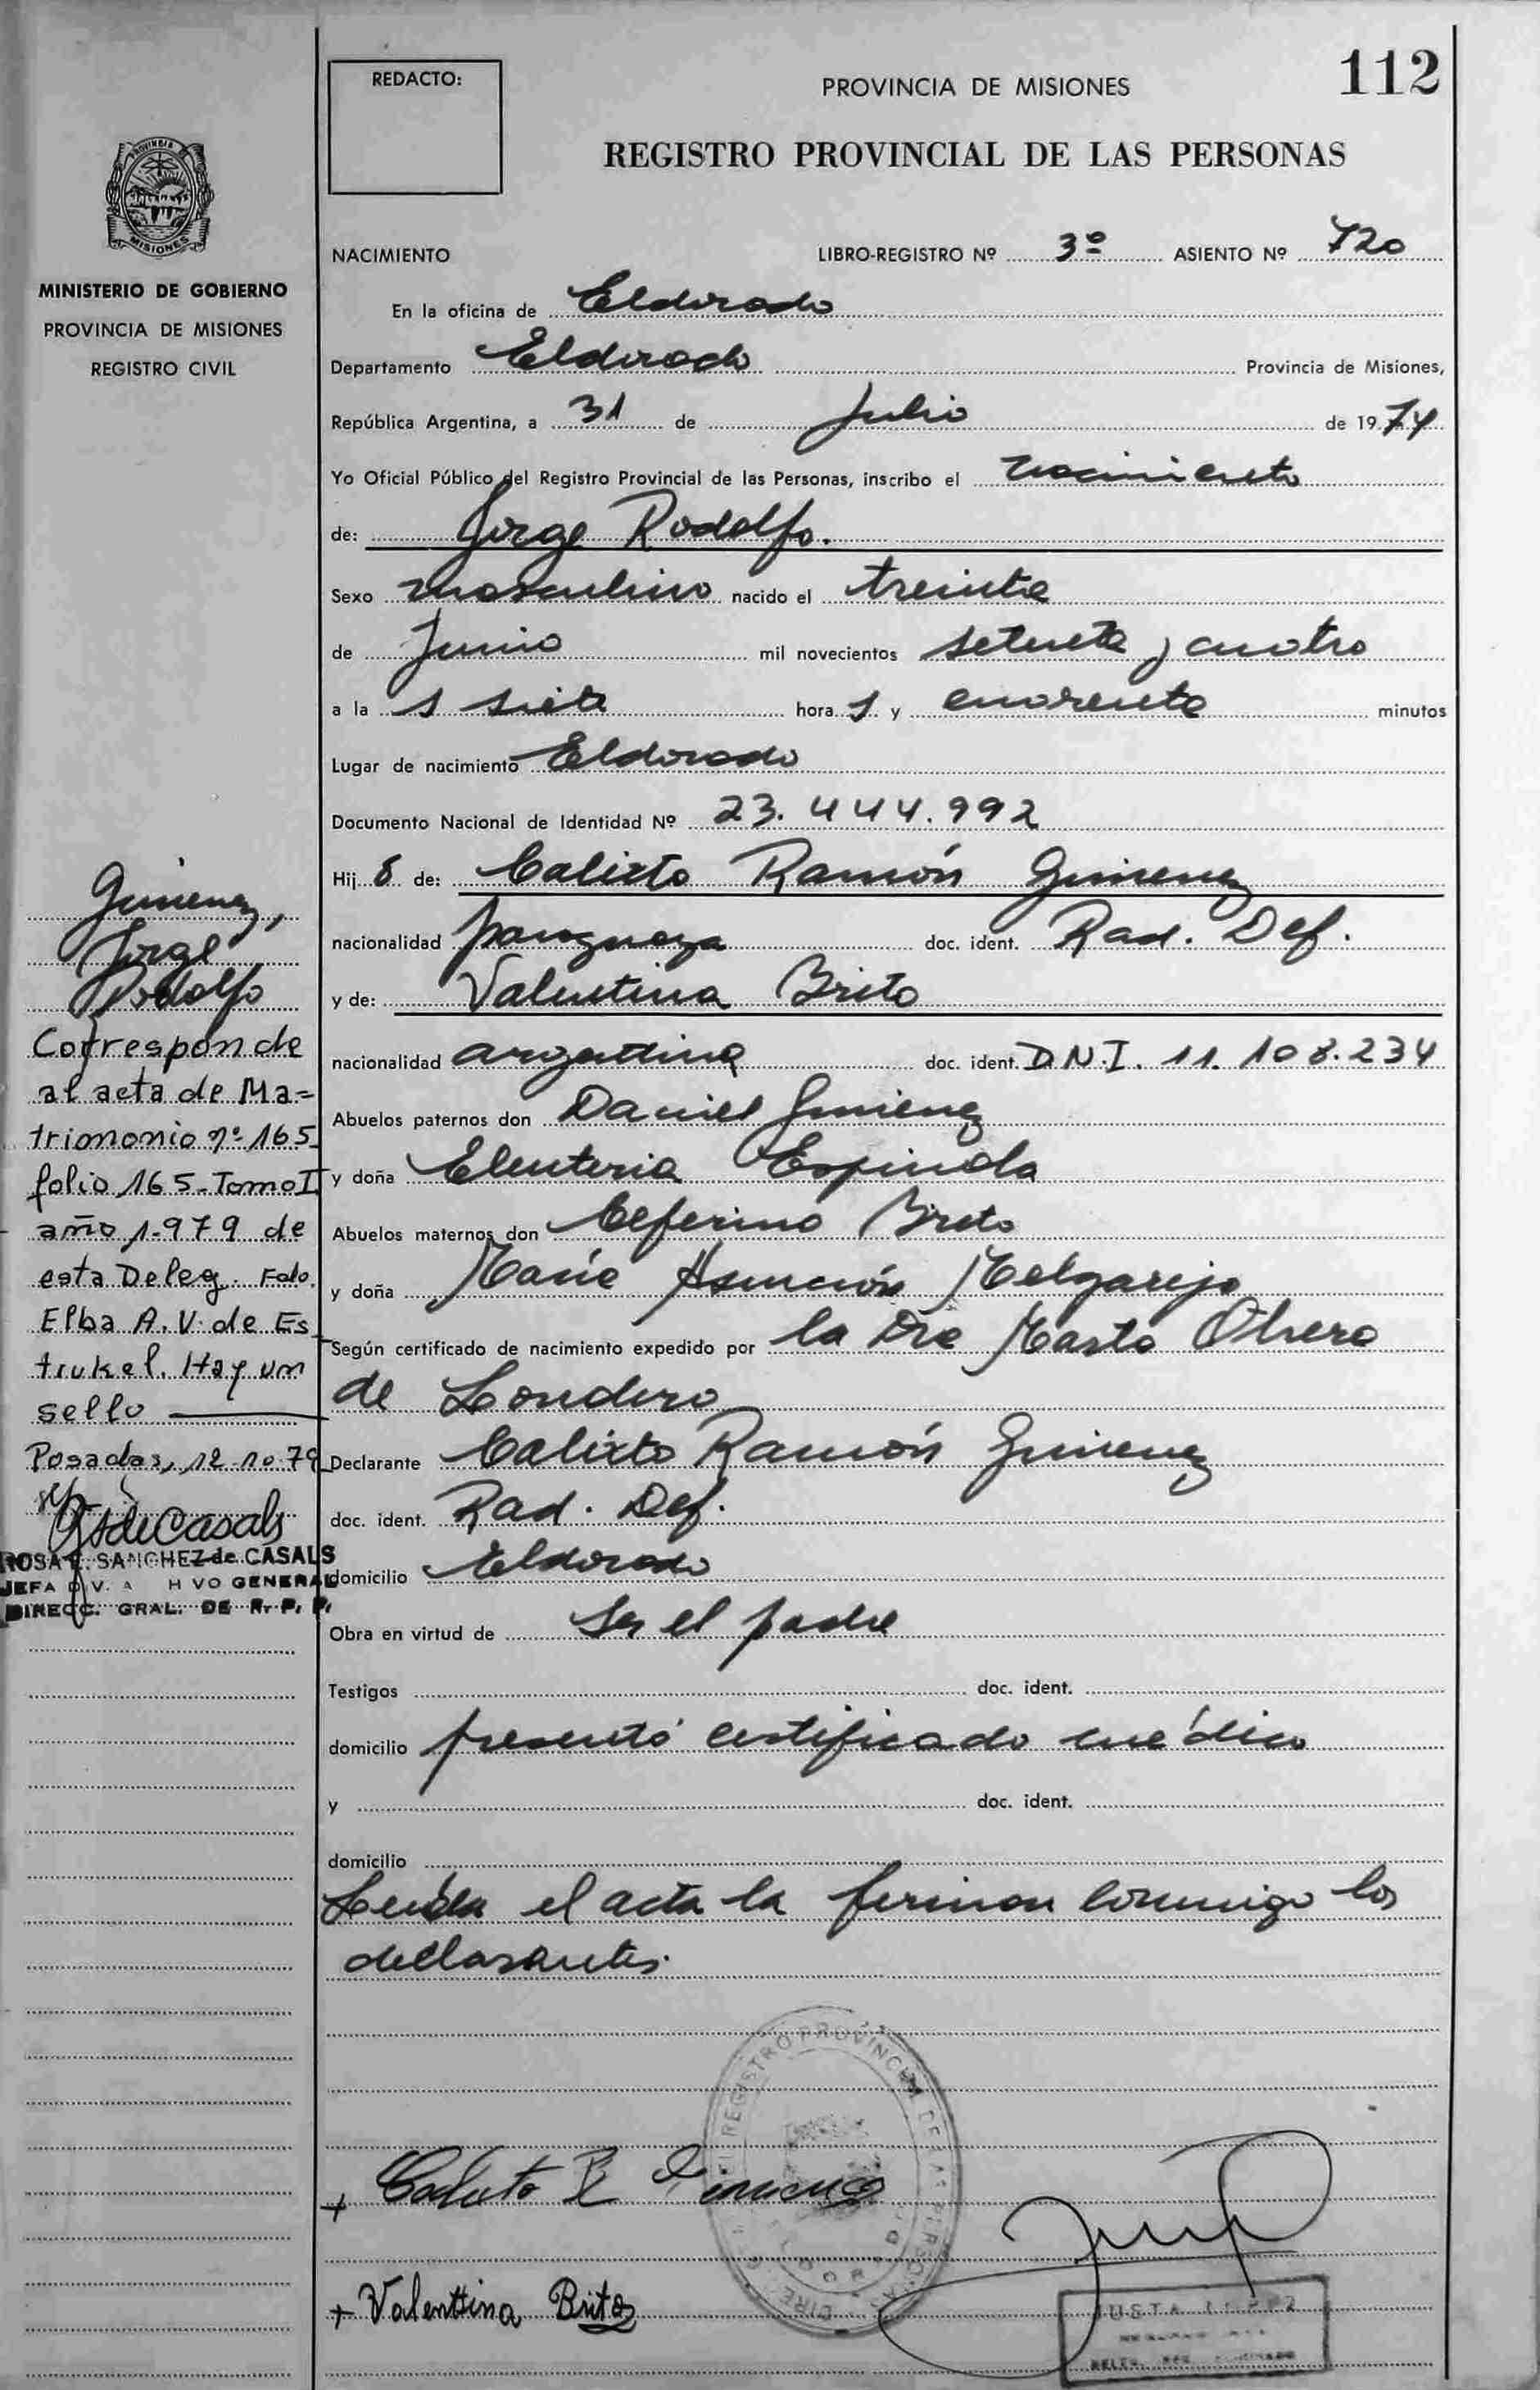 112
REDACTO:
PROVINCIA DE MISIONES
REGISTRO PROVINCIAL DE LAS PERSONAS
PROVINCIA
MISIONES
MINISTERIO DE GOBIERNO
PROVINCIA DE MISIONES
REGISTRO CIVIL
NACIMIENTO LIBRO-REGISTRO Nº 3º ASIENTO Nº 720
En la oficina de Eldorado
Departamento Eldorado Provincia de Misiones,
República Argentina, a 31 de Julio de 1974
Yo Oficial Público del Registro Provincial de las Personas, inscribo el nacimiento
de: Jorge Rodolfo.
Sexo masculino nacido el treinta
de Junio mil novecientos setenta y cuatro
a la s siete hora s y cuarenta minutos
Lugar de nacimiento Eldorado
Documento Nacional de Identidad Nº 23.444.992
Hij o de: Calixto Ramón Gimenez
nacionalidad paraguaya doc. ident. Rad. Def.
y de: Valentina Brito
nacionalidad argentina doc. ident. D.N.I. 11.108.234
Abuelos paternos don Daniel Gimenez
y doña Eleuteria Espinola
Abuelos maternos don Ceferino Brito
y doña María Asunción Melgarejo
Según certificado de nacimiento expedido por la Dra Marta Otero
de Londero
Declarante Calixto Ramón Gimenez
doc. ident. Rad. Def.
domicilio Eldorado
Obra en virtud de ser el padre
Testigos doc. ident.
domicilio presentó certificado médico
y doc. ident.
domicilio
Leída el acta la firman conmigo los
declarantes.
Gimenez,
Jorge
Rodolfo
Corresponde
al acta de Ma=
trimonio nº 165
folio 165-Tomo I
año 1.979 de
esta Deleg. Fdo.
Elba A. V. de Es
trukel. Hay un
sello
Posadas, 12-10-79
RSdeCasals
ROSA E. SANCHEZ de CASALS
JEFA DIV. A HVO GENERAL
DIRECC. GRAL. DE R. P. P.
REGISTRO PROVINCIAL DE LAS PERSONAS
ELDORADO
+ Calixto R Gimenez
+ Valentina Brito
JUSTA